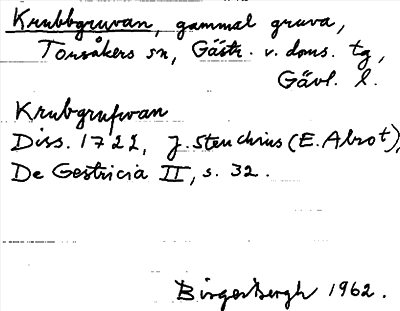 Krubbgruvan, gammal gruva,
Torsåkers sn, Gästr. v. doms. tg,
Gävl. l.
Krubgrufwan
Diss. 1722, J. Stenchius (E. Abrot),
De Gestricia II, s. 32.
Birger Bergh 1962.